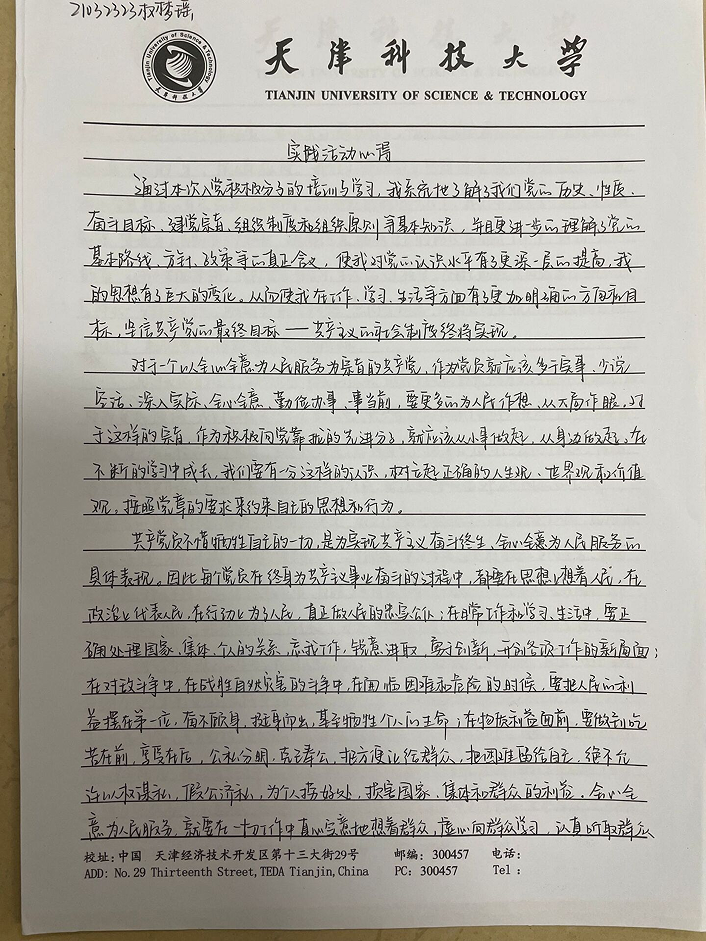 21032323权梦瑶
Tianjin University of Science & Technology
天津科技大学
天津科技大学
TIANJIN UNIVERSITY OF SCIENCE & TECHNOLOGY
实践活动心得
通过本次入党积极分子的培训与学习,我系统地了解了我们党的历史、性质、
奋斗目标、建党宗旨、组织制度和组织原则等基本知识,并且更进一步的理解了党的
基本路线、方针、政策等的真正含义,使我对党的认识水平有了更深一层的提高,我
的思想有了巨大的变化。从而使我在工作、学习、生活等方面有了更加明确的方向和目
标,坚信共产党的最终目标——共产主义的社会制度终将实现。
对于一个以全心全意为人民服务为宗旨的共产党,作为党员就应该多干实事、少说
空话、深入实际、全心全意、勤俭办事、事当前,要更多的为人民作想、从大局作眼。对
于这样的宗旨,作为积极向党靠拢的先进分子,就应该从小事做起,从身边做起。在
不断的学习中成长,我们要有一分这样的认识,树立起正确的人生观、世界观和价值
观,按照党章的要求来约束自己的思想和行为。
共产党员不惜牺牲自己的一切,是为实现共产主义奋斗终生、全心全意为人民服务的
具体表现。因此每个党员在终身为共产主义事业奋斗的过程中,都要在思想上想着人民,在
政治上代表人民,在行动上为了人民,真正做人民的忠实公仆;在日常工作和学习、生活中,要正
确处理国家、集体、个人的关系,忘我工作,锐意进取,勇于创新,开创各项工作的新局面;
在对敌斗争中,在战胜自然灾害的斗争中,在面临困难和危险的时候,要把人民的利
益摆在第一位,奋不顾身、挺身而出,甚至牺牲个人的生命;在物质利益面前,要做到吃
苦在前,享受在后,公私分明,克己奉公,把方便让给群众,把困难留给自己,绝不允
许以权谋私,假公济私,为个人捞好处,损害国家、集体和群众的利益。全心全
意为人民服务,就要在一切工作中真心实意地想着群众,虚心向群众学习,认真听取群众
校址:中国 天津经济技术开发区第十三大街29号 邮编:300457 电话:
ADD: No.29 Thirteenth Street,TEDA Tianjin,China PC: 300457 Tel :